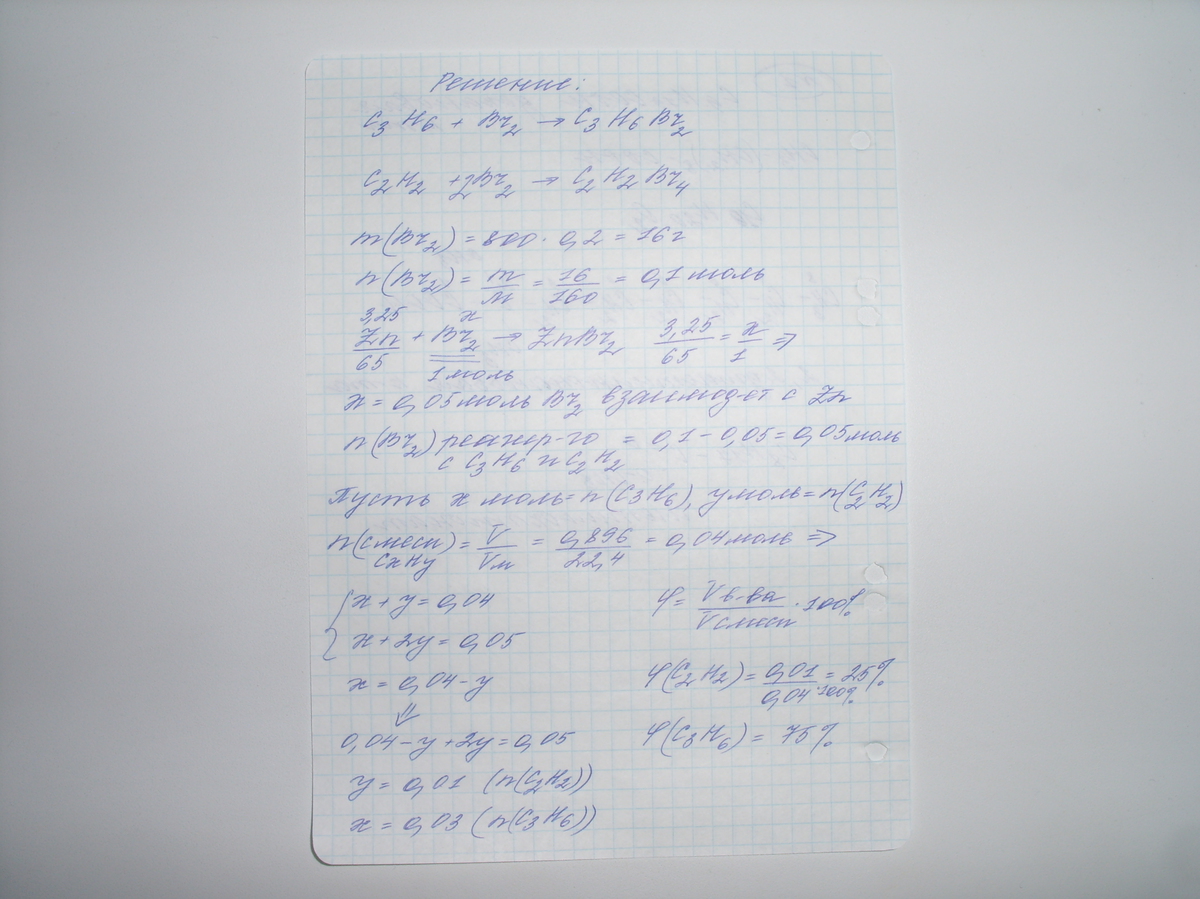 Решение:
C3H6 + Br2 → C3H6Br2
C2H2 + 2Br2 → C2H2Br4
m(Br2) = 800 · 0,2 = 16 г
n(Br2) = m/M = 16/160 = 0,1 моль
3,25 x
Zn + Br2 → ZnBr2 3,25/65 = x/1 ⇒
65 1 моль
x = 0,05 моль Br2 взаимод-ет с Zn
n(Br2) реагир-го = 0,1 - 0,05 = 0,05 моль
с C3H6 и C2H2
Пусть x моль = n(C3H6), y моль = n(C2H2)
n(смеси) = V/Vм = 0,896/22,4 = 0,04 моль ⇒
CxHy
{ x + y = 0,04
x + 2y = 0,05
x = 0,04 - y
⇓
0,04 - y + 2y = 0,05
y = 0,01 (n(C2H2))
x = 0,03 (n(C3H6))
φ = Vв-ва/Vсмеси · 100%
φ(C2H2) = 0,01/0,04 · 100% = 25%
φ(C3H6) = 75%